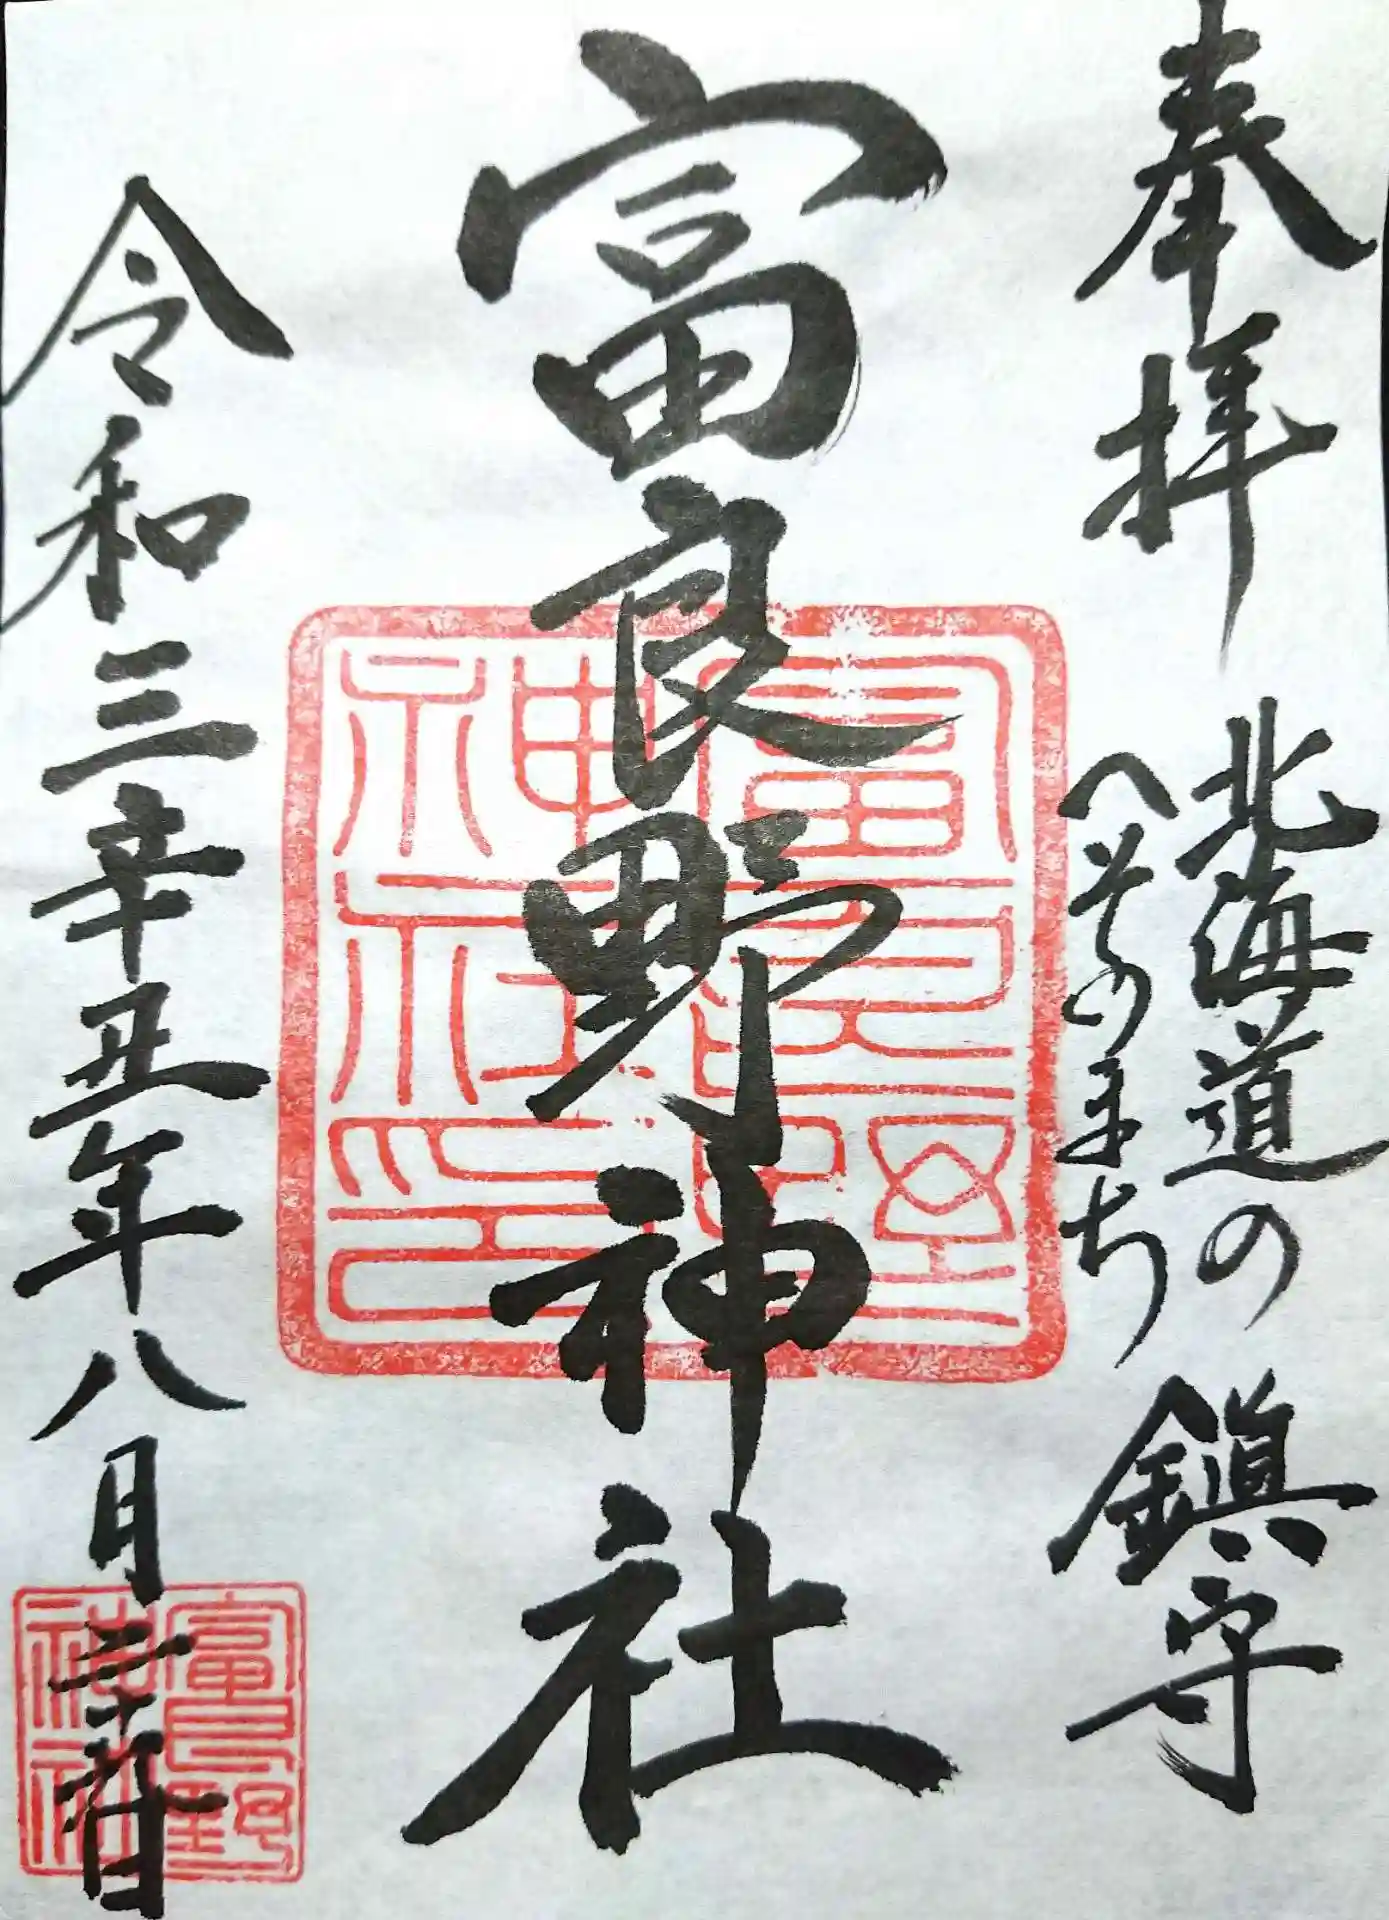 奉拝
北海道の
へそのまち
鎮守
富良野神社
富良野
神社印
令和三辛丑年八月日
富良野
神社